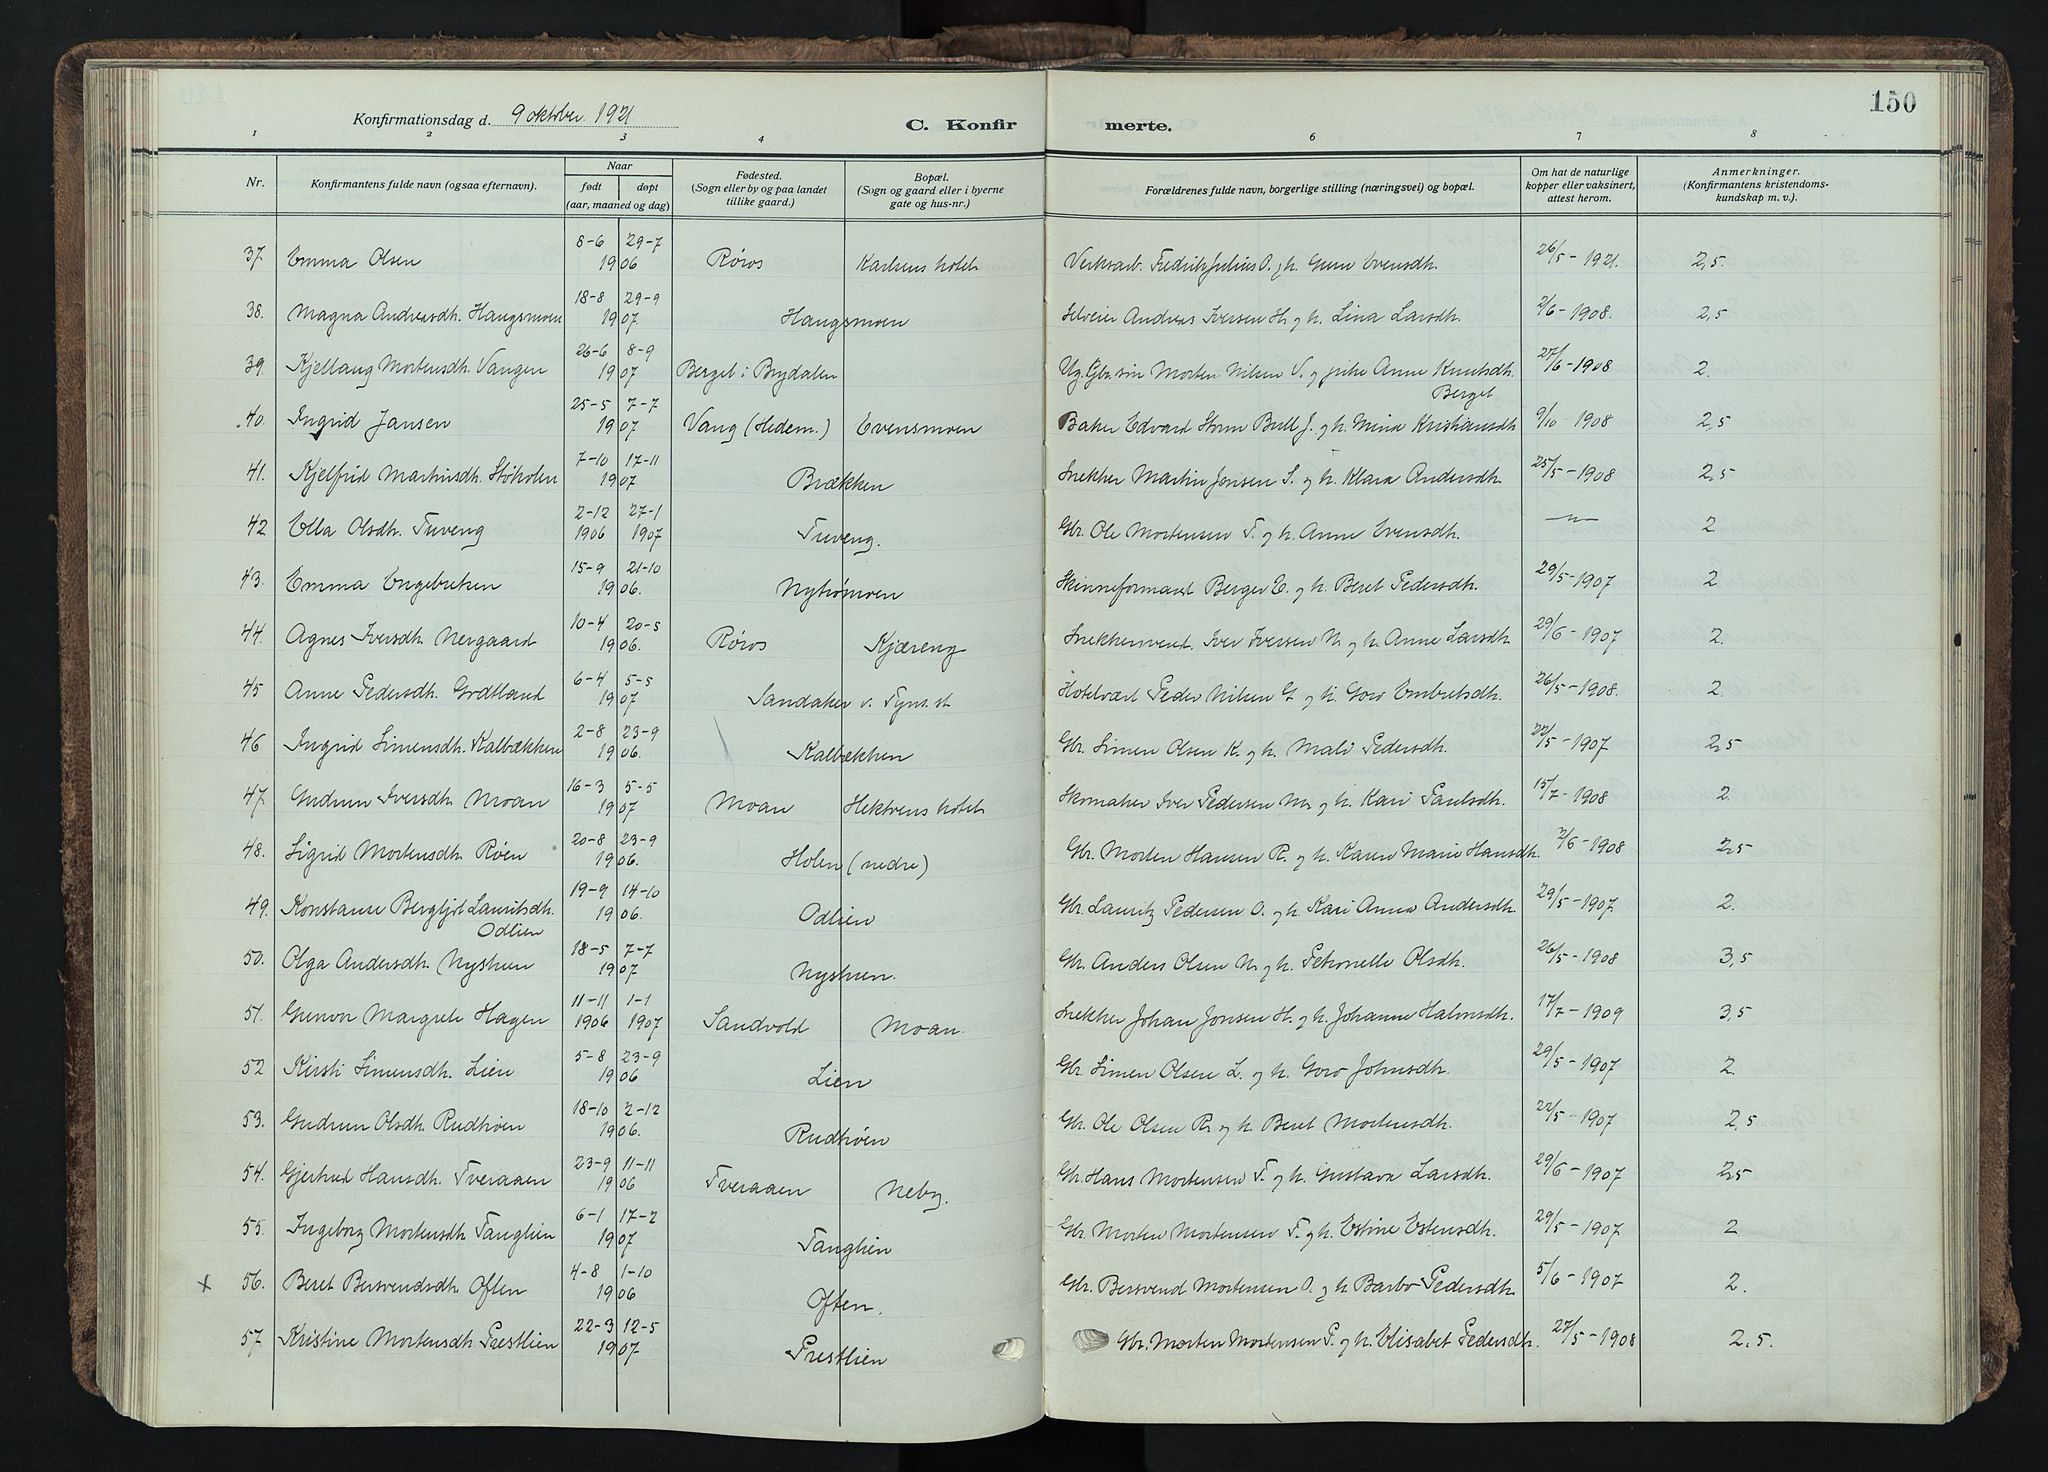 150
Konfirmationsdag d. 9 oktober 1921
C. Konfir merte.
1 2 3 4 6 7 8
Nr.
Konfirmantens fulde navn (ogsaa efternavn).
Naar
født døpt
(aar, maaned og dag)
Fødested.
(Sogn eller by og paa landet
tillike gaard.)
Bopæl.
(Sogn og gaard eller i byerne
gate og hus-nr.)
Forældrenes fulde navn, borgerlige stilling (næringsvei) og bopæl.
Om hat de naturlige
kopper eller vaksinert,
attest herom.
Anmerkninger.
(Konfirmantens kristendoms-
kundskap m. v.).
37. Emma Olsen 8-6 29-7 1906 Røros Karlsens hotel Verksarb. Fredrik Julius O. og h. Gunn Evensdh. 26/5-1921. 2,5.
38. Magna Andreasdh. Haugsmoen 18-8 29-9 1907 Haugsmoen Andreas Iversen H. og h. Lina Larsdh. 2/6-1908. 2,5
39. Kjellaug Mortensdh. Vangen 26-6 8-9 1907 Berget i Brydalen Ug. Gbr.søn Morten Nilsen V. og pike Anne Knutsdh. Berget 27/6-1908 2.
40. Ingrid Jansen 25-5 7-7 1907 Vang (Hedem.) Evensmoen Baker Edvard Storm Bull J. og h. Mina Kristiansdh 9/10 1908 2,5
41. Kjelfrid Martinsdh. Støholen 7-10 17-11 1907 Brækken Snekker Martin Jonsen S. og h. Klara Andersdh. 25/5-1908 2,5
42 Ella Olsdh. Tuveng 2-12 27-1 1906 1907 Tuveng. Gbr. Ole Mortensen T. og h. Anne Evensdh. —"— 2
43. Emma Engebretsen 15-9 21-10 1906. Nytrømoen Skinneformand Berger E. og h. Beret Pedersdh. 29/5-1907 2
44. Agnes Iversdh. Nergaard 10-4 20-5 1906. Røros Kjæreng Snekkersvend. Iver Iversen N. og h. Anne Larsdh. 29/6-1907 2.
45 Anne Pedersdh. Grøtland 6-4 5-5 1907 Sandaker v. Tyns. st Hotelvært Peder Nilsen G. og h. Goro Embretsdh. 26/5-1908. 2.
46 Ingrid Simensdh. Kalbækken 2-8 23-9 1906. Kalbækken Gbr. Simen Olsen K. og h. Mali Pedersdh. 22/5-1907 2,5
47. Gudrun Iversdh. Moan 16-3 5-5 1907 Moan Hektoens hotel Skomaker Iver Pedersen M. og h. Kari Paulsdh. 15/7-1908 2.
48. Sigrid Mortensdh. Røen 20-8 23-9 1906. Holen (nedre) Gbr. Morten Hansen R. og h. Karen Marie Hansdh. 2/6-1908 2,5
49. Konstanse Bergljot Lauritsdh. Odlien 19-9 14-10 1906. Odlien Gbr. Lauritz Pedersen O. og h. Kari Anna Andersdh. 29/5-1907. 2.
50. Olga Andersdh. Nystuen 18-5 7-7 1907 Nystuen. Gbr. Anders Olsen N. og h. Petronelle Olsdh. 26/5-1908 3,5
51. Gunvor Margrete Hagen 11-11 1-1 1906 1907 Sandvold Moan. Snekker Johan Jonsen H. og h. Johanne Halvorsdh. 17/7-1909 3,5
52 Kirsti Simensdh. Lien 5-8 23-9 1906 Lien Gbr. Simen Olsen L. og h. Goro Johnsdh. 29/5-1907 2.
53. Gudrun Olsdh. Rudtrøen 18-10 2-12 1906. Rudtrøen Gbr. Ole Olsen R. og h. Beret Mortensdh. 22/5-1907 2,5.
54. Gjertrud Hansdh. Tveraaen 23-9 11-11 1906 Tveraaen Neby. Gbr. Hans Mortensen T. og h. Gustava Larsdh. 29/6-1907 2,5
55. Ingeborg Mortensdh Tanglien 6-1 17-2 1907 Tanglien Gbr. Morten Mortensen T. og h. Estine Estensdh. 29/5-1907 2
x 56. Beret Bersvendsdh. Often 4-8 1-10 1906 Often. Gbr. Bersvend Mortensen O. og h. Barbo Pedersdh. 5/6-1907 2.
57. Kristine Mortensdh. Prestlien 22-3 12-5 1907 Prestlien Gbr. Morten Mortensen P. og h. Elisabet Pedersdh. 27/5-1908 2,5.